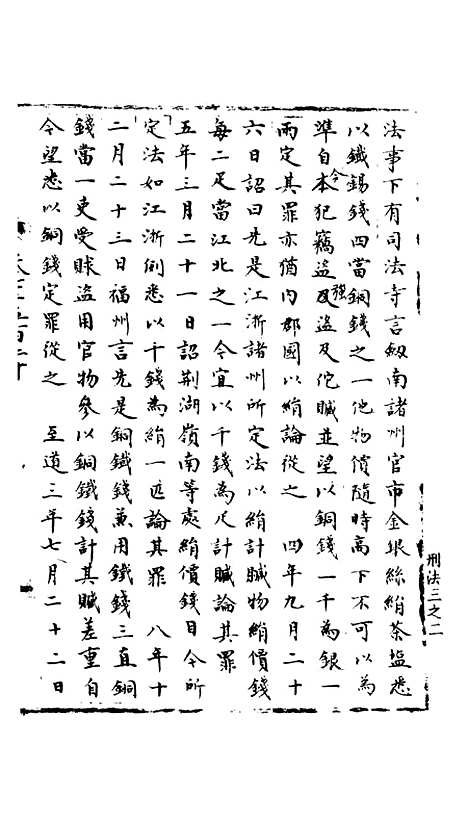 刑法三之二
法事下有司法寺言劔南諸州官市金銀絲絹茶塩悉
以鐵錫錢四當銅錢之一他物價隨時高下不可以為
準自今本犯竊盜及強盜及佗贓並望以銅錢一千為銀一
兩定其罪亦猶內郡國以絹論從之　四年九月二十
六日詔曰先是江浙諸州所定法以絹計贓物絹價錢
每二疋當江北之一令宜以千錢為疋計贓論其罪
五年三月二十一日詔荆湖嶺南等處絹價錢目今所
定法如江浙例悉以千錢為絹一匹論其罪　八年十
二月二十三日福州言先是銅鐵錢兼用鐵錢三直銅
錢當一吏受賕盜用官物參以銅鐵錢計其贓差重自
今望悉以銅錢定罪從之　至道三年七月二十二日